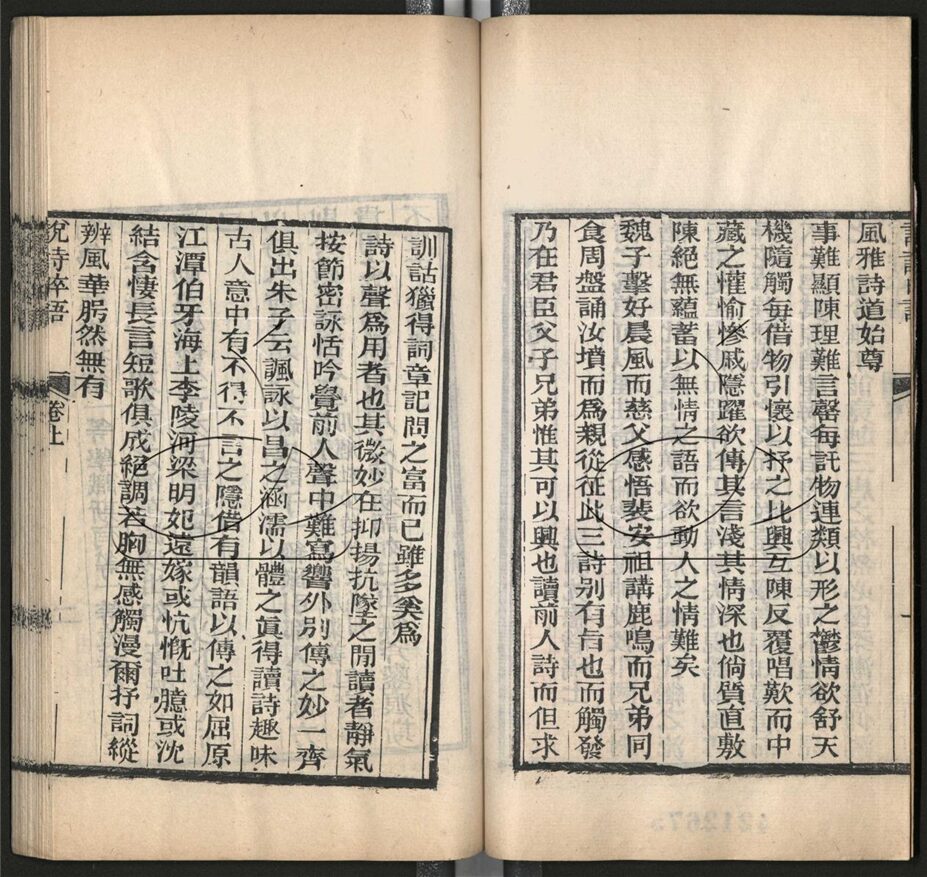 風雅詩道始尊
事難顯陳理難言罄每託物連類以形之鬱情欲舒天
機隨觸每借物引懷以抒之比興互陳反覆唱歎而中
藏之懽愉慘戚隱躍欲傳其言淺其情深也倘質直敷
陳絕無蘊蓄以無情之語而欲動人之情難矣
魏子擊好晨風而慈父感悟裴安祖講鹿鳴而兄弟同
食周盤誦汝墳而爲親從征此三詩别有旨也而觸發
乃在君臣父子兄弟惟其可以興也讀前人詩而但求
訓詁獵得詞章記問之富而已雖多奚爲
詩以聲爲用者也其微妙在抑揚抗墜之閒讀者靜氣
按節密詠恬吟覺前人聲中難寫響外别傳之妙一齊
俱出朱子云諷詠以昌之涵濡以體之眞得讀詩趣味
古人意中有不得不言之隱借有韻語以傳之如屈原
江潭伯牙海上李陵河梁明妃遠嫁或忼慨吐臆或沈
結含悽長言短歌俱成絕調若胸無感觸漫爾抒詞縱
辨風華枵然無有
說詩晬語
卷上